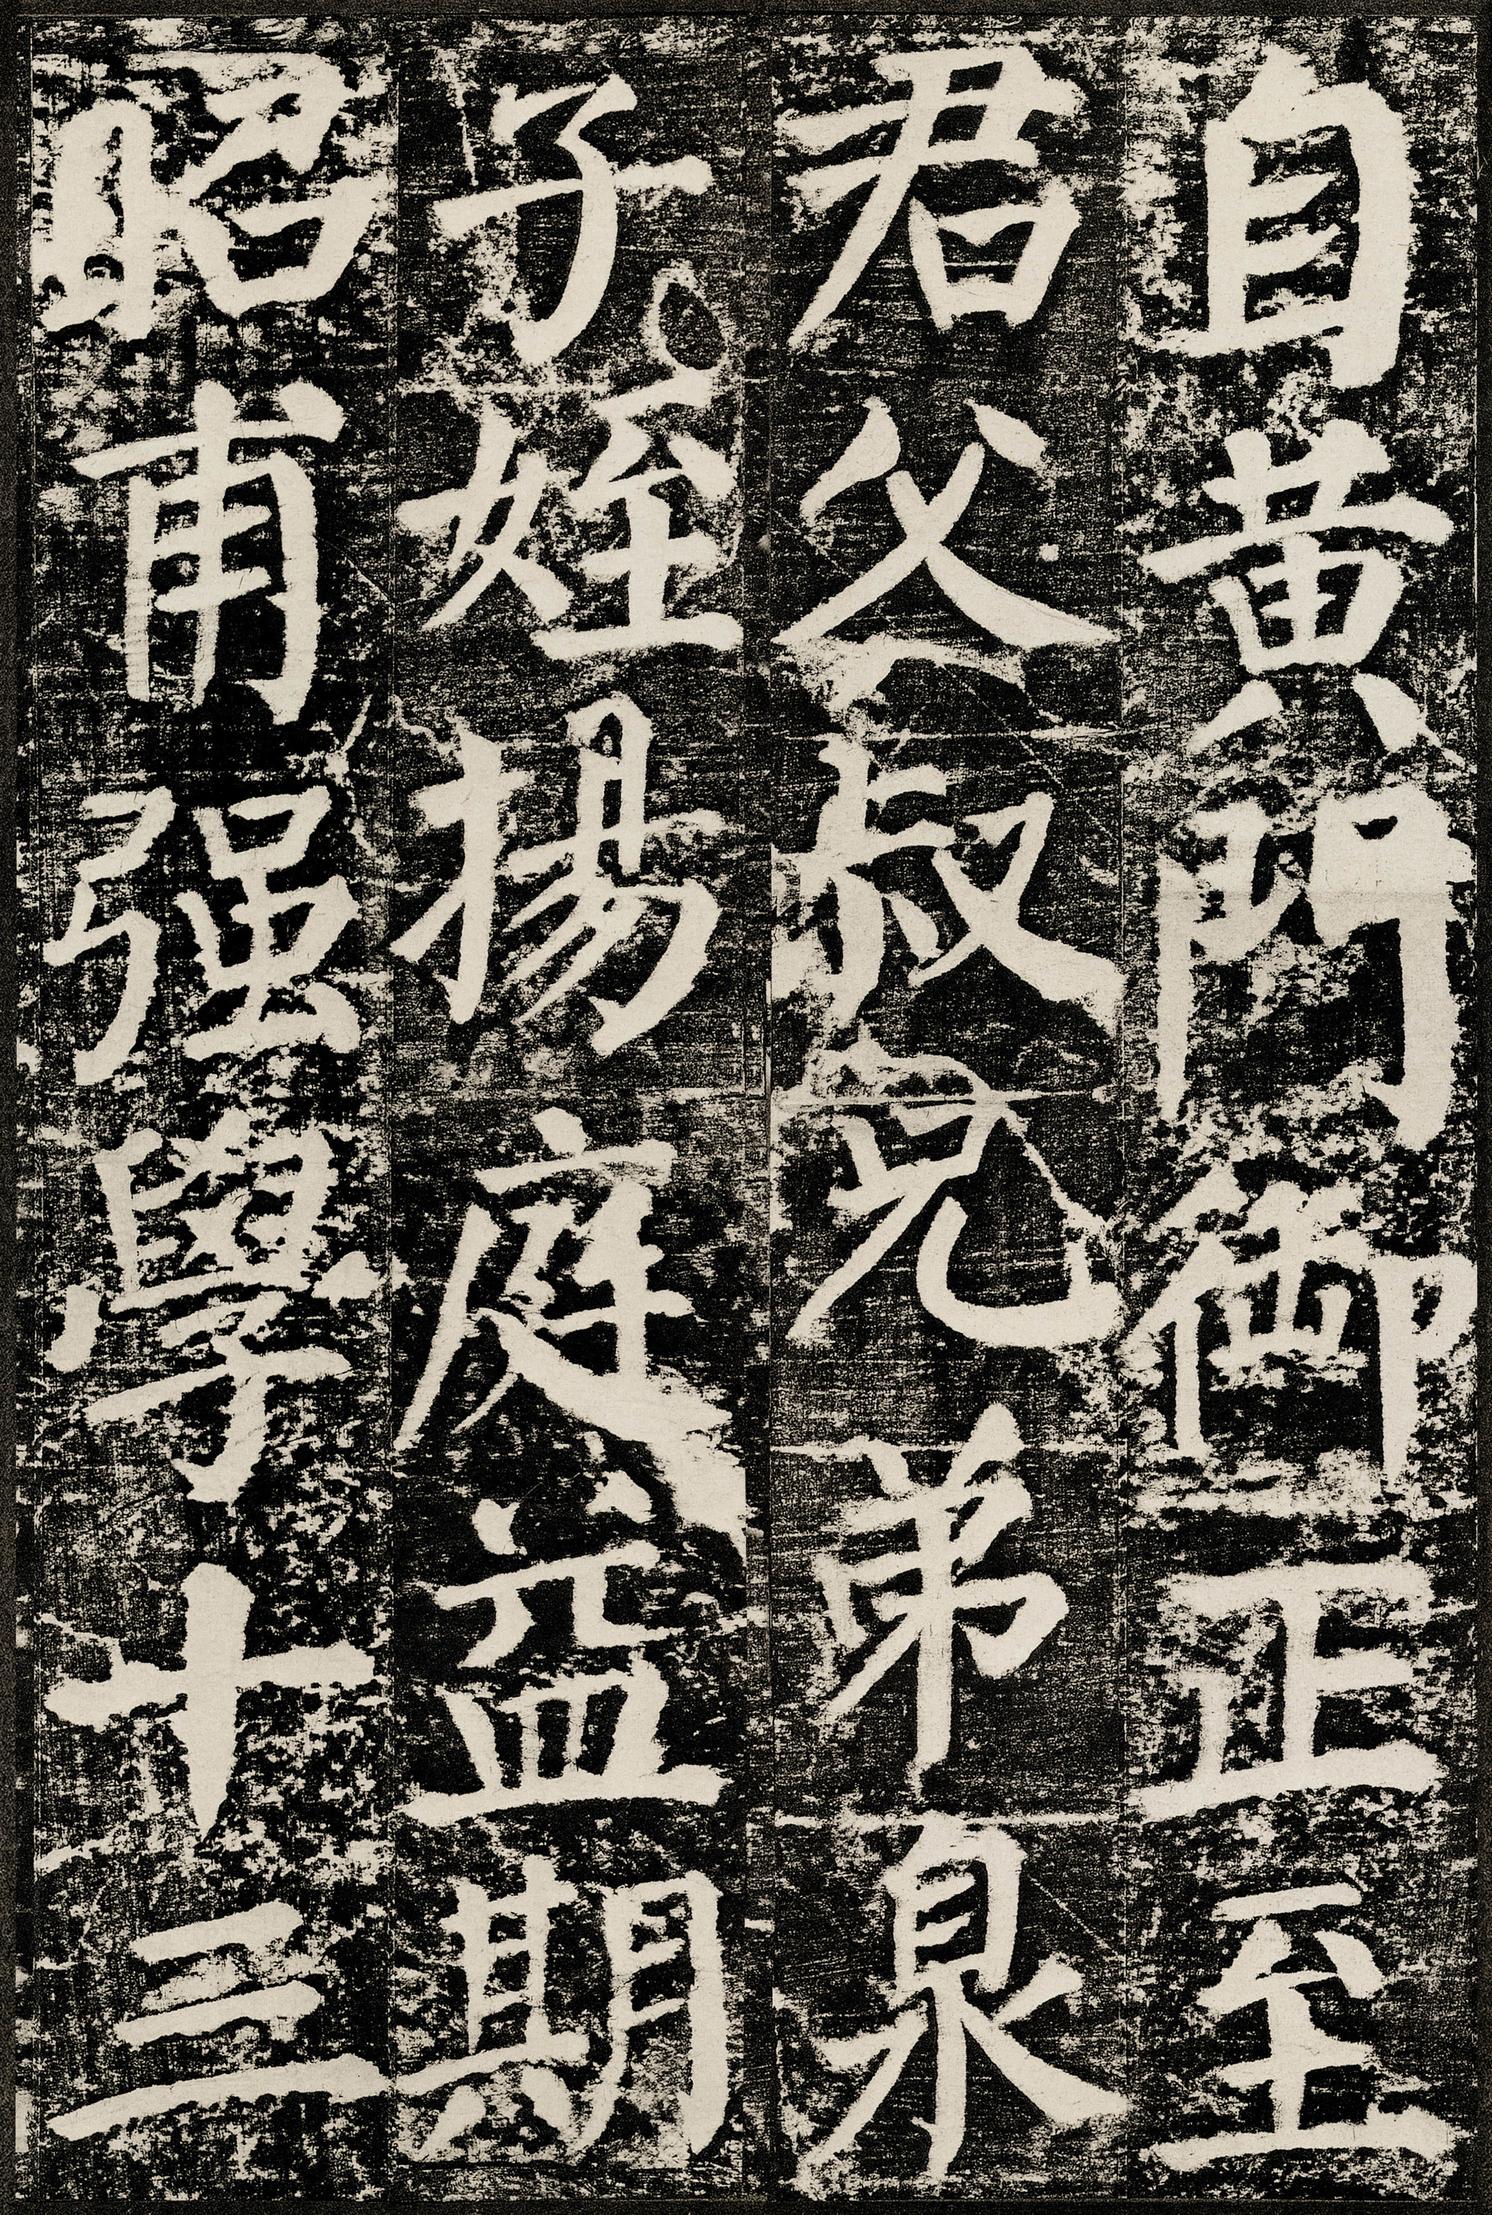 自黃門御正至
君父叔兄弟泉
子姪揚庭益期
昭甫强學十三